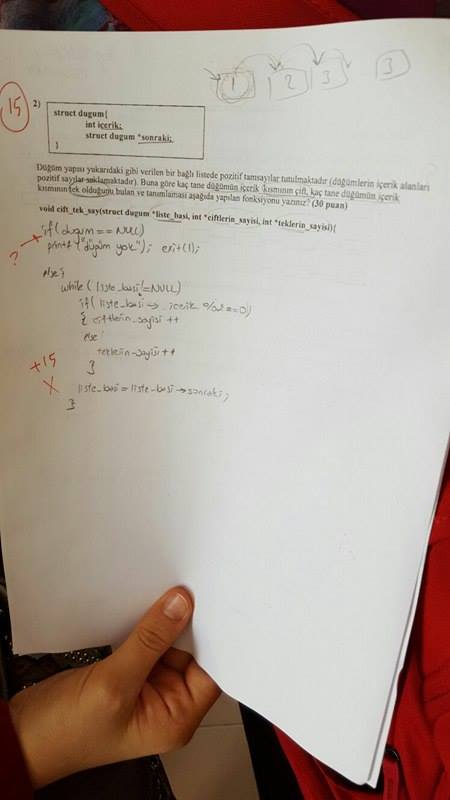 1 2 3 3
15
2)
struct dugum{
int içerik;
struct dugum *sonraki;
}
Düğüm yapısı yukarıdaki gibi verilen bir bağlı listede pozitif tamsayılar tutulmaktadır (düğümlerin içerik alanları
pozitif sayılar saklamaktadır). Buna göre kaç tane düğümün içerik kısmının çift, kaç tane düğümün içerik
kısmının tek olduğunu bulan ve tanımlaması aşağıda yapılan fonksiyonu yazınız? (30 puan)
void cift_tek_say(struct dugum *liste_basi, int *ciftlerin_sayisi, int *teklerin_sayisi){
if(dugum == NULL)
? printf("düğüm yok"); exit(1);
else{
while (liste_basi!=NULL)
if(liste_basi→ icerik %2==0)
{ ciftlerin_sayisi ++
else
teklerin_sayisi++
}
+15
X liste_basi=liste_basi→sonraki;
}